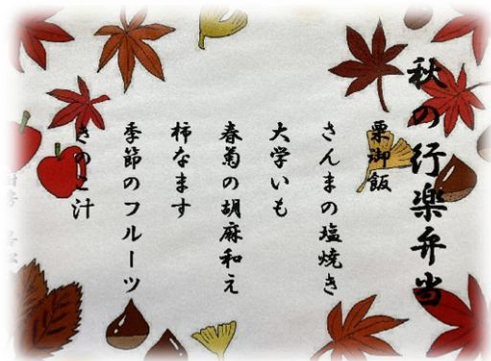 秋の行楽弁当
栗御飯
さんまの塩焼き
大学いも
春菊の胡麻和え
柿なます
季節のフルーツ
きのこ汁